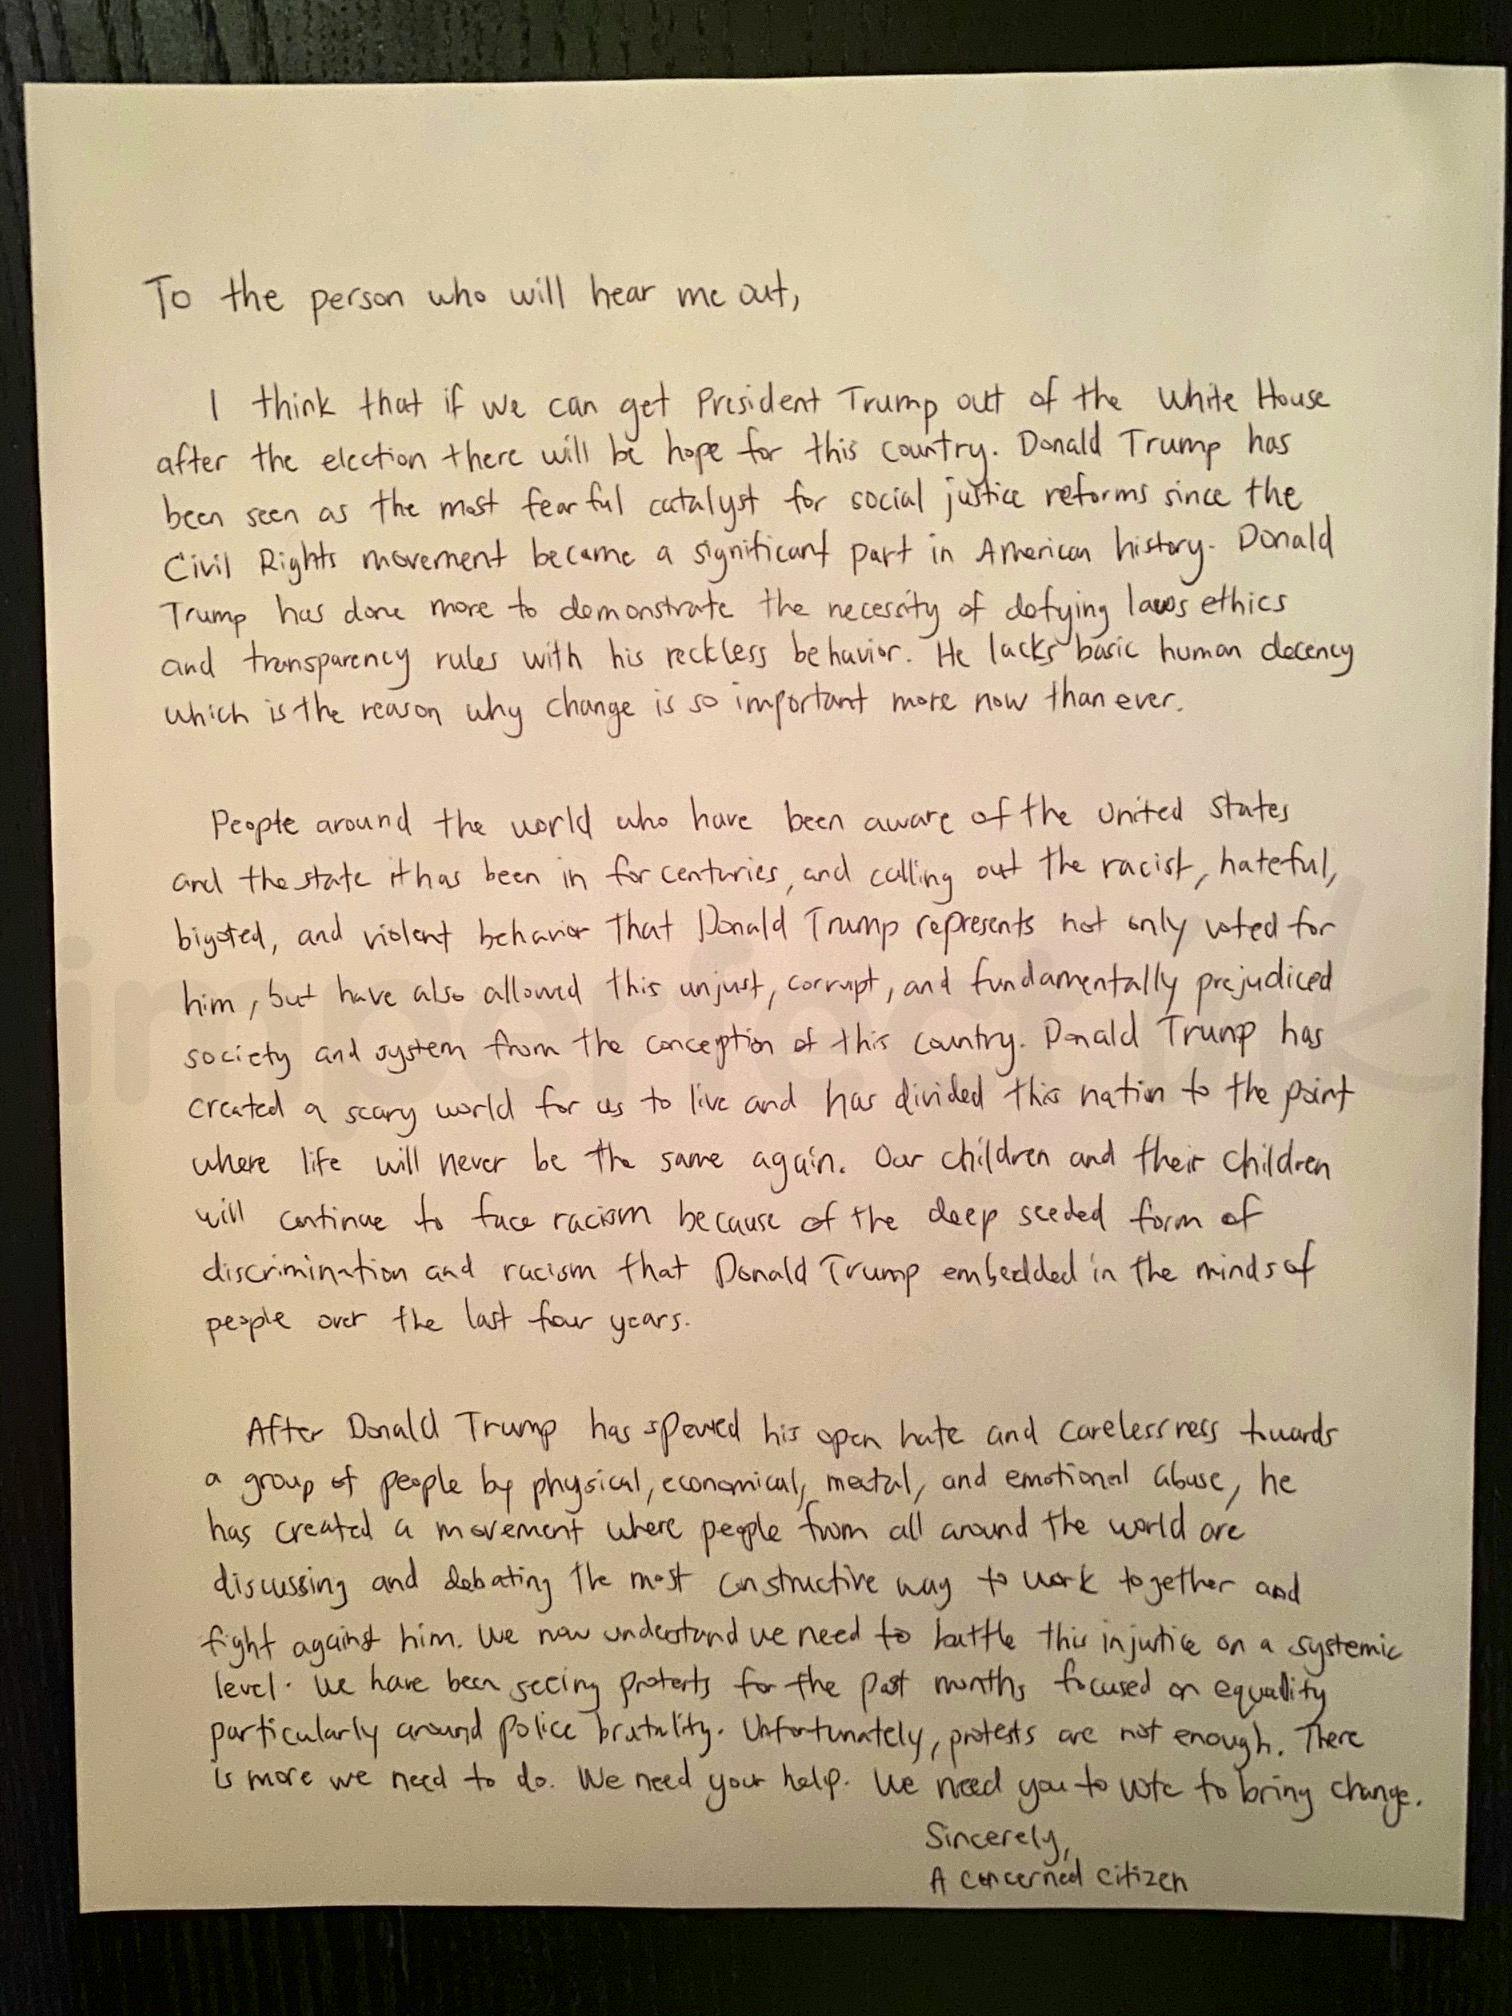 To the person who will hear me out,
I think that if we can get President Trump out of the White House
after the election there will be hope for this country. Donald Trump has
been seen as the most fearful catalyst for social justice reforms since the
Civil Rights movement became a significant part in American history. Donald
Trump has done more to demonstrate the necessity of defying laws ethics
and transparency rules with his reckless behavior. He lacks basic human decency
which is the reason why change is so important more now than ever.
People around the world who have been aware of the United States
and the state it has been in for centuries, and calling out the racist, hateful,
bigoted, and violent behavior that Donald Trump represents not only voted for
him, but have also allowed this unjust, corrupt, and fundamentally prejudiced
society and system from the conception of this country. Donald Trump has
created a scary world for us to live and has divided this nation to the point
where life will never be the same again. Our children and their children
will continue to face racism because of the deep seeded form of
discrimination and racism that Donald Trump embedded in the minds of
people over the last four years.
After Donald Trump has spewed his open hate and carelessness towards
a group of people by physical, economical, mental, and emotional abuse, he
has created a movement where people from all around the world are
discussing and debating the most constructive way to work together and
fight against him. We now understand we need to battle this injustice on a systemic
level. We have been seeing protests for the past months focused on equality
particularly around police brutality. Unfortunately, protests are not enough. There
is more we need to do. We need your help. We need you to vote to bring change.
Sincerely,
A concerned citizen